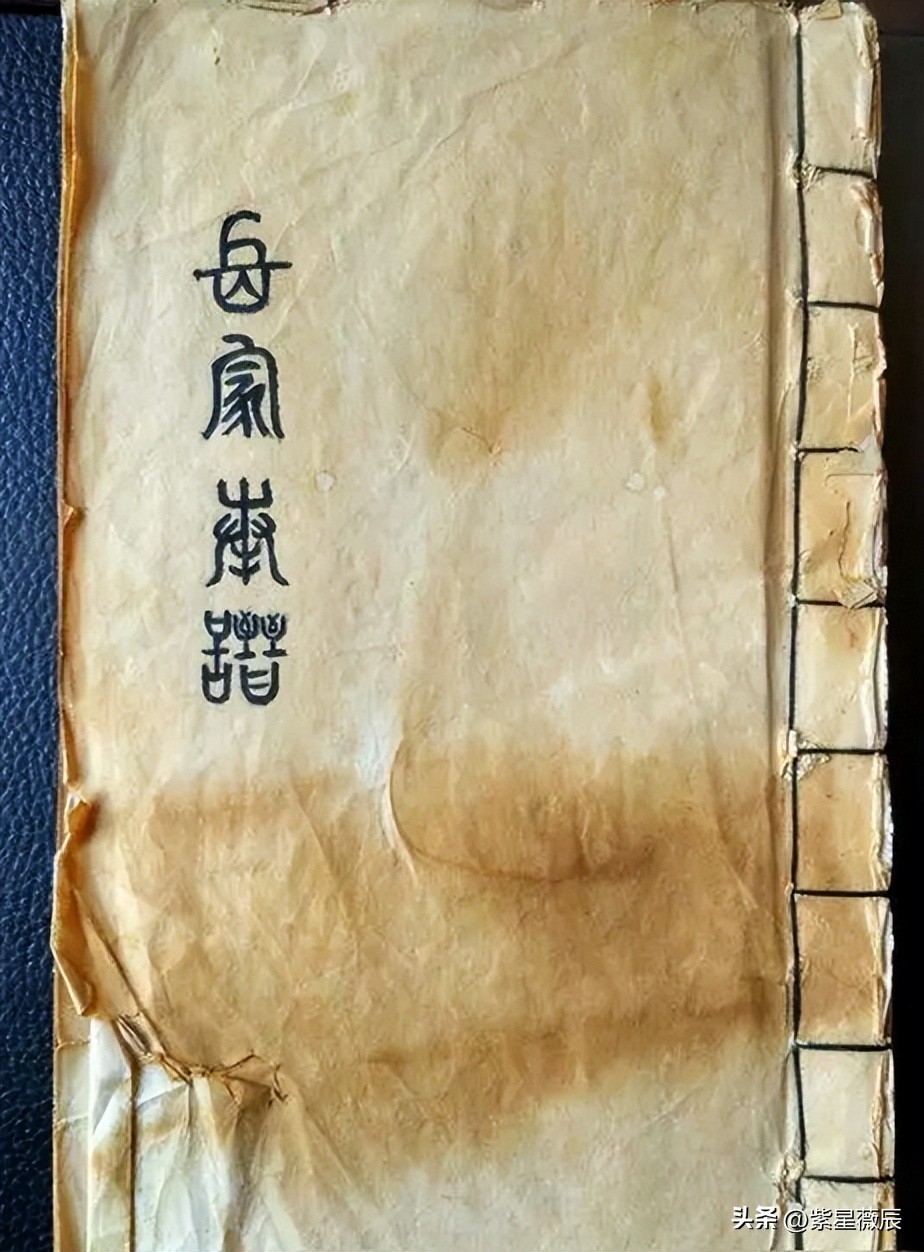 岳家拳譜
头条 @紫星薇辰